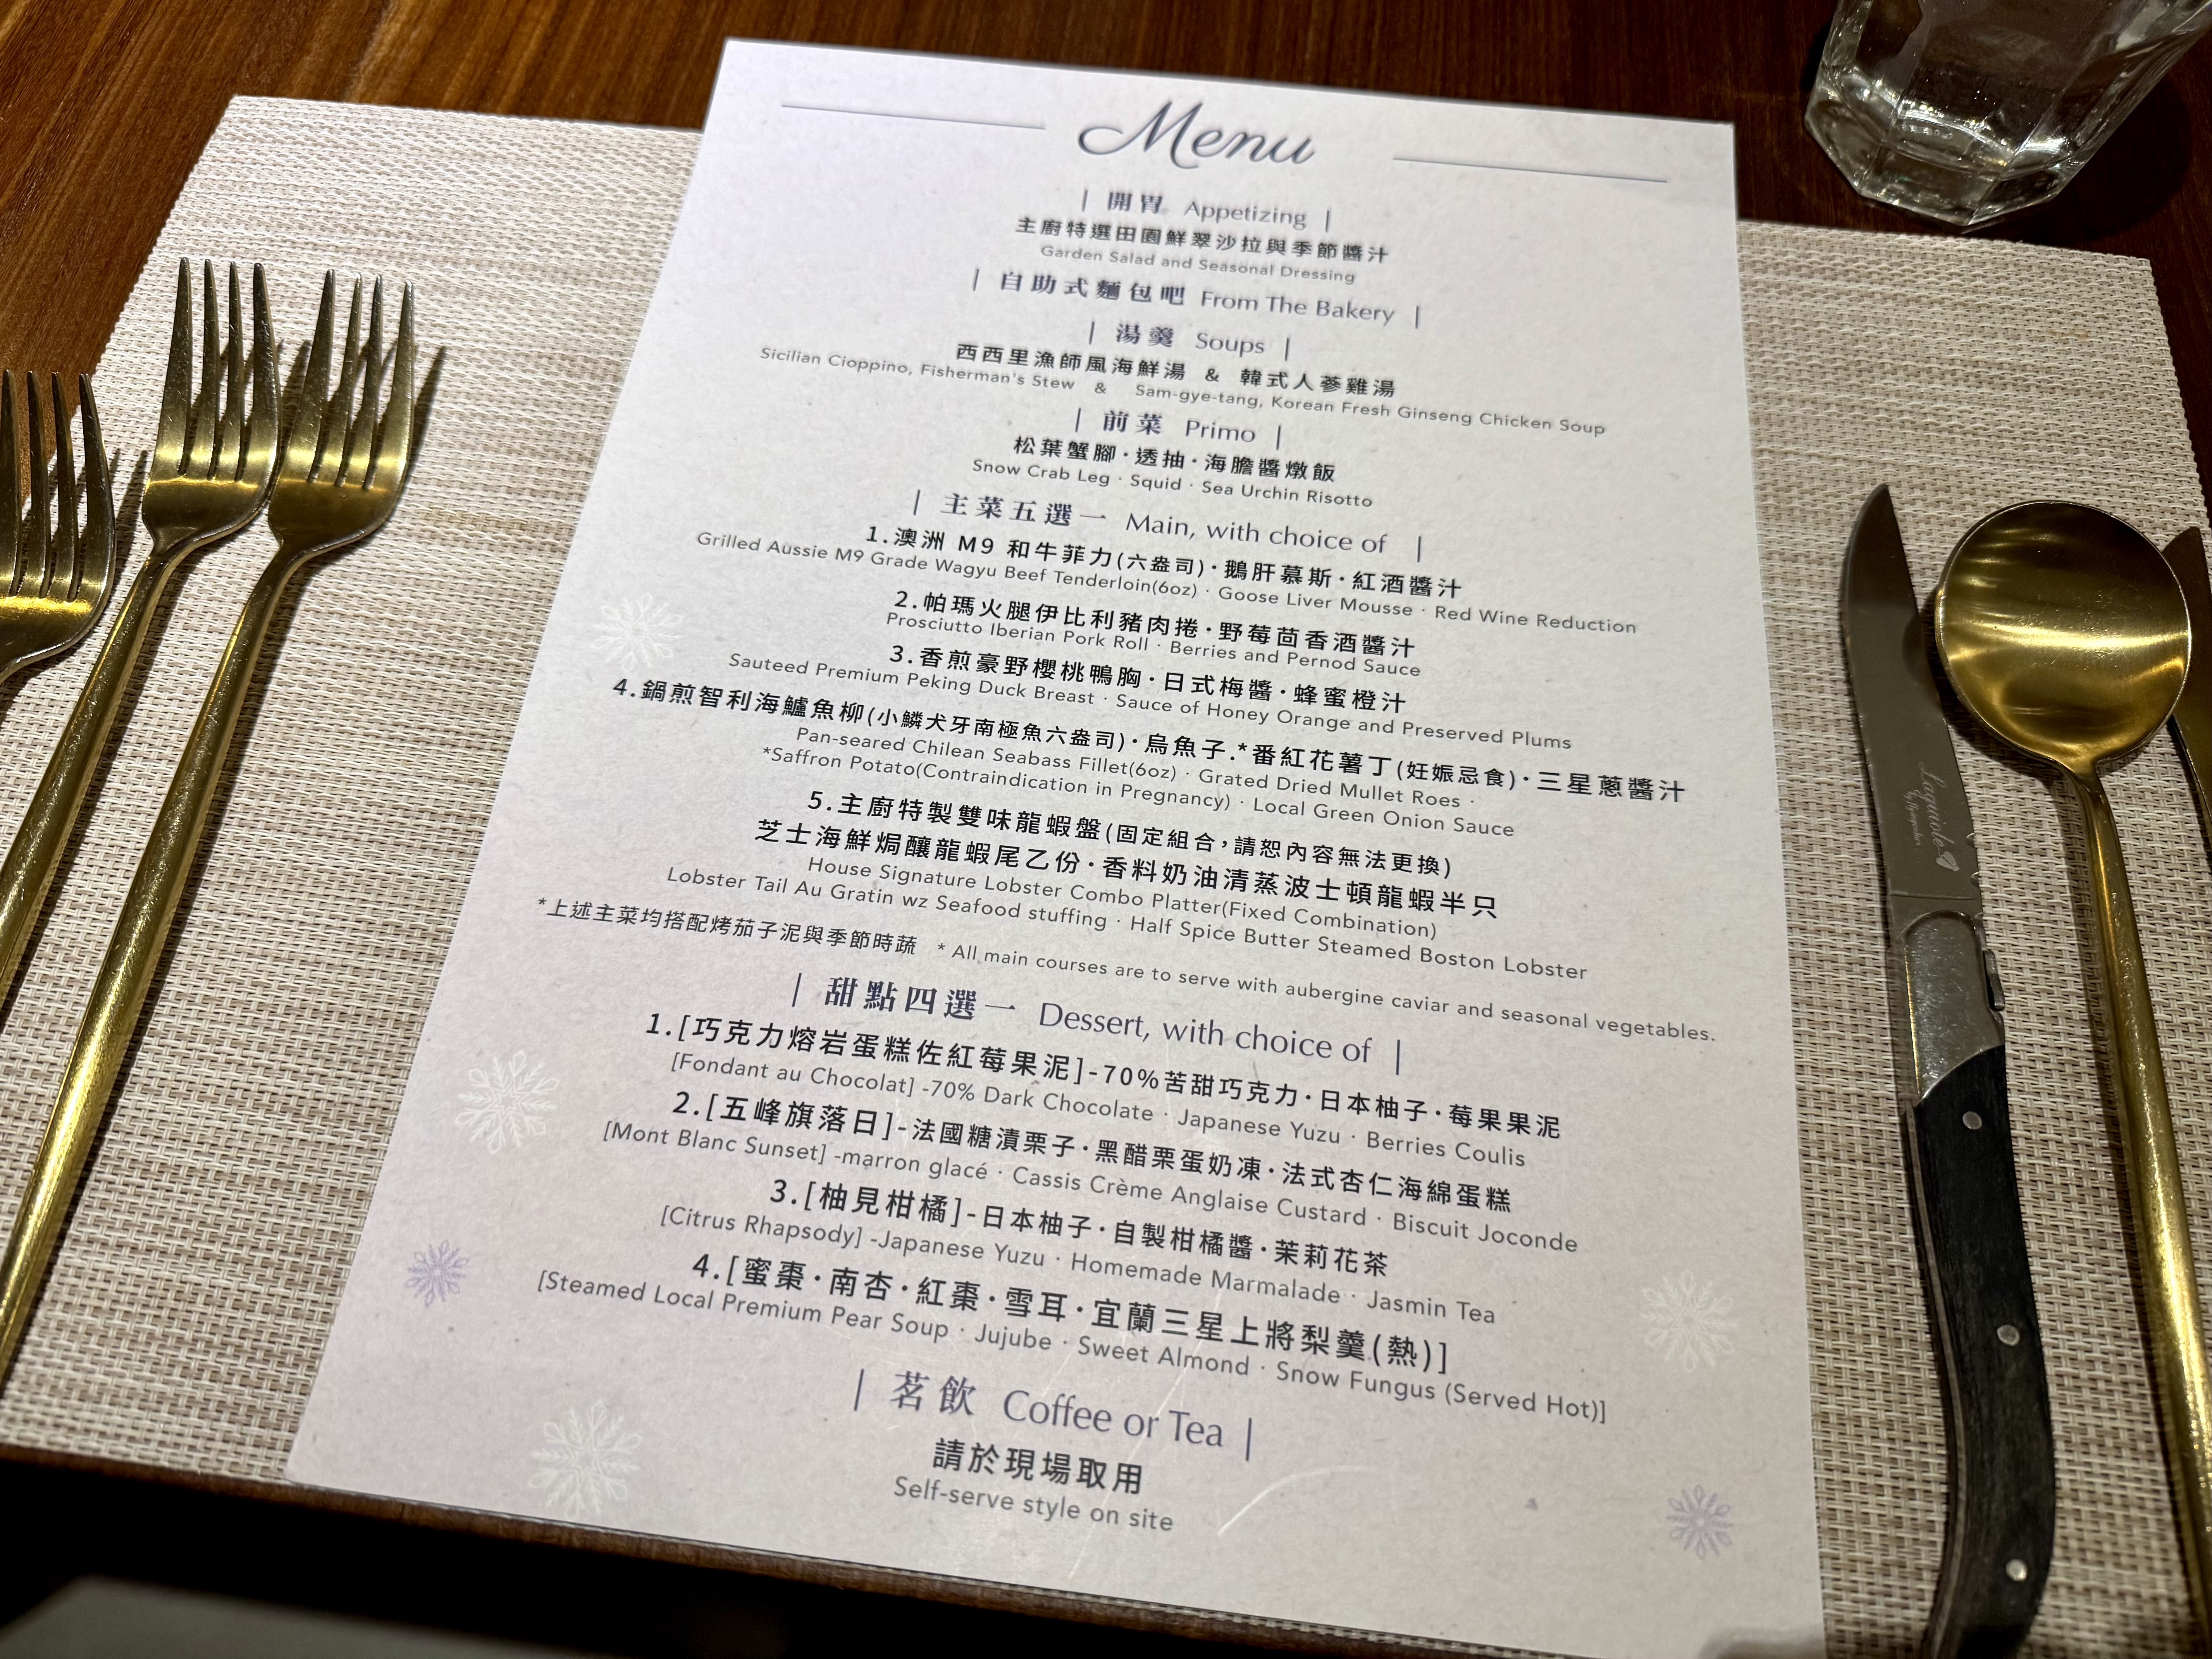 Menu
| 開胃 Appetizing |
主廚特選田園鮮翠沙拉與季節醬汁
Garden Salad and Seasonal Dressing
| 自助式麵包吧 From The Bakery |
| 湯羹 Soups |
西西里漁師風海鮮湯 & 韓式人蔘雞湯
Sicilian Cioppino, Fisherman's Stew & Sam-gye-tang, Korean Fresh Ginseng Chicken Soup
| 前菜 Primo |
松葉蟹腳·透抽·海膽醬燉飯
Snow Crab Leg · Squid · Sea Urchin Risotto
| 主菜五選一 Main, with choice of |
1.澳洲 M9 和牛菲力(六盎司)·鵝肝慕斯·紅酒醬汁
Grilled Aussie M9 Grade Wagyu Beef Tenderloin(6oz) · Goose Liver Mousse · Red Wine Reduction
2.帕瑪火腿伊比利豬肉捲·野莓茴香酒醬汁
Prosciutto Iberian Pork Roll · Berries and Pernod Sauce
3.香煎豪野櫻桃鴨胸·日式梅醬·蜂蜜橙汁
Sauteed Premium Peking Duck Breast · Sauce of Honey Orange and Preserved Plums
4.鍋煎智利海鱸魚柳(小鱗犬牙南極魚六盎司)·烏魚子·*番紅花薯丁(妊娠忌食)·三星蔥醬汁
Pan-seared Chilean Seabass Fillet(6oz) · Grated Dried Mullet Roes ·
*Saffron Potato(Contraindication in Pregnancy) · Local Green Onion Sauce
5.主廚特製雙味龍蝦盤(固定組合，請恕內容無法更換)
芝士海鮮焗釀龍蝦尾乙份·香料奶油清蒸波士頓龍蝦半只
House Signature Lobster Combo Platter(Fixed Combination)
Lobster Tail Au Gratin wz Seafood stuffing · Half Spice Butter Steamed Boston Lobster
*上述主菜均搭配烤茄子泥與季節時蔬 * All main courses are to serve with aubergine caviar and seasonal vegetables.
| 甜點四選一 Dessert, with choice of |
1.[巧克力熔岩蛋糕佐紅莓果泥]-70%苦甜巧克力·日本柚子·莓果果泥
[Fondant au Chocolat] -70% Dark Chocolate · Japanese Yuzu · Berries Coulis
2.[五峰旗落日]-法國糖漬栗子·黑醋栗蛋奶凍·法式杏仁海綿蛋糕
[Mont Blanc Sunset] -marron glacé · Cassis Crème Anglaise Custard · Biscuit Joconde
3.[柚見柑橘]-日本柚子·自製柑橘醬·茉莉花茶
[Citrus Rhapsody] -Japanese Yuzu · Homemade Marmalade · Jasmin Tea
4.[蜜棗·南杏·紅棗·雪耳·宜蘭三星上將梨羹(熱)]
[Steamed Local Premium Pear Soup · Jujube · Sweet Almond · Snow Fungus (Served Hot)]
| 茗飲 Coffee or Tea |
請於現場取用
Self-serve style on site
Laguiole